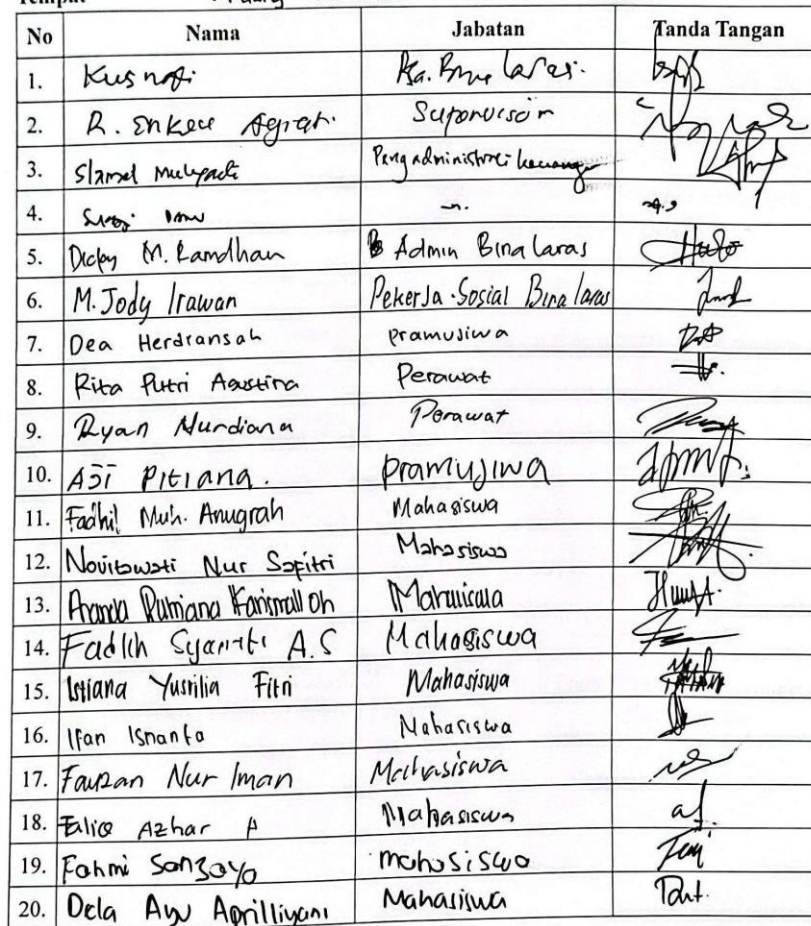 Tempat :
No Nama Jabatan Tanda Tangan
1. Kusnadi Ka. Bina Laras.
2. R. Enkeu Agiati Supervisor
3. Slamet Mulyadi Pengadministrasi keuangan
4.
5. Dicky M. Ramdhan Admin Bina Laras
6. M. Jody Irawan Pekerja Sosial Bina laras
7. Dea Herdiansah Pramujiwa
8. Rita Putri Agustina Perawat
9. Ryan Nurdiana Perawat
10. AJI PITIANA. pramujiwa
11. Fadhil Muh. Anugrah Mahasiswa
12. Novitawati Nur Safitri Mahasiswa
13. Ananda Mahasiswa
14. Fadlih A.S Mahasiswa
15. Istiana Yusnilia Fitri Mahasiswa
16. Ifan Isnanto Mahasiswa
17. Fauzan Nur Iman Mahasiswa
18. Azhar A Mahasiswa
19. Fahmi Sanjaya mahasiswa
20. Dela Ayu Aprilliyani Mahasiswa